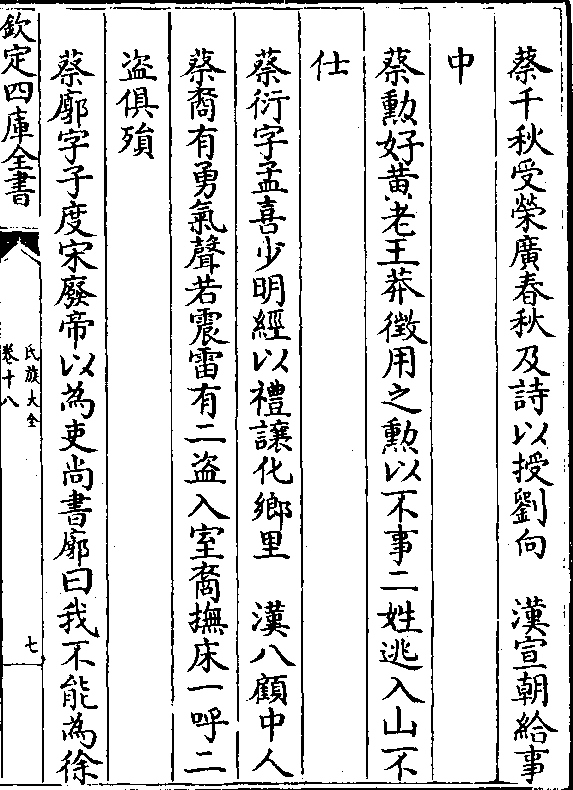 蔡千秋受榮廣春秋及詩以授劉向　漢宣朝給事
中
蔡勲好黄老王莽徴用之勲以不事二姓逃入山不
仕
蔡衍字孟喜少明經以禮讓化鄉里　漢八顧中人
蔡裔有勇氣聲若震雷有二盗入室裔撫床一呼二
盗俱殞
蔡廓字子度宋廢帝以為吏尚書廓曰我不能為徐
欽定四庫全書
氏族大全
卷十八
七